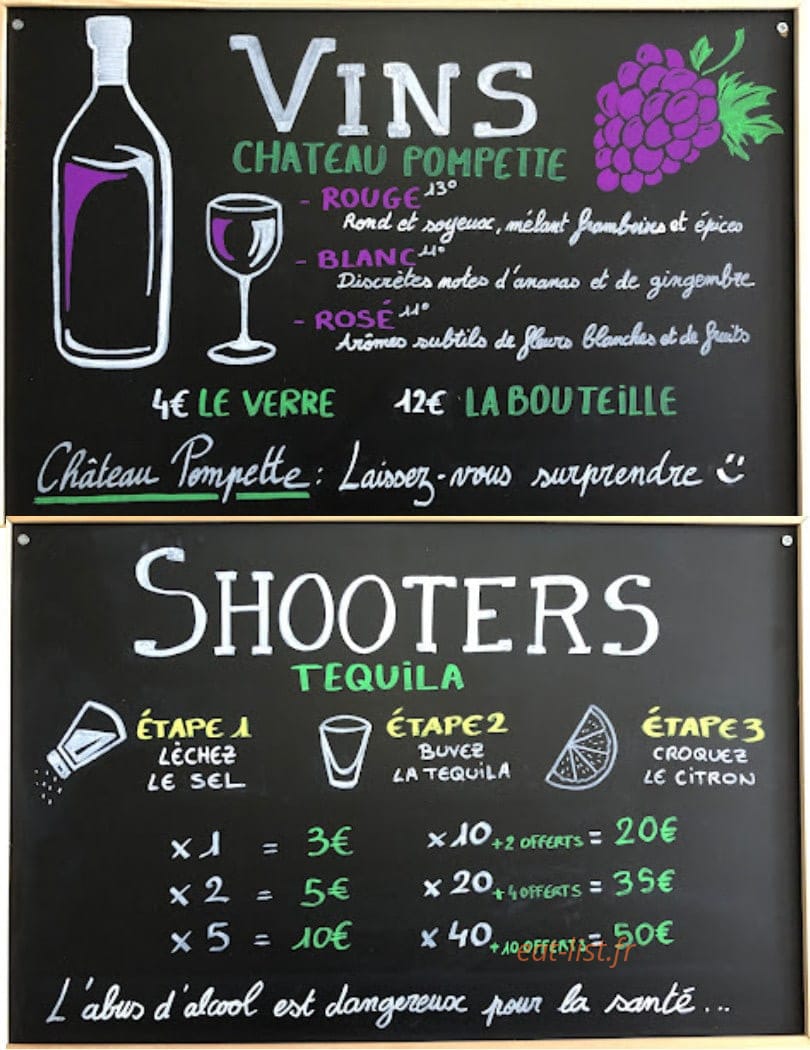 VINS
CHATEAU POMPETTE
- ROUGE 13°
Rond et soyeux, mêlant framboises et épices
- BLANC 11°
Discrètes notes d'ananas et de gingembre
- ROSÉ 11°
Arômes subtils de fleurs blanches et de fruits
4€ LE VERRE 12€ LA BOUTEiLLE
Château Pompette : Laissez-vous surprendre
SHOOTERS
TEQUiLA
ÉTAPE 1
LÈCHEZ
LE SEL
ÉTAPE 2
BUVEZ
LA TEQUiLA
ÉTAPE 3
CROQUEZ
LE CiTRON
x 1 = 3€
x 2 = 5€
x 5 = 10€
x 10 +2 OFFERTS = 20€
x 20 +4 OFFERTS = 35€
x 40 +10 OFFERTS = 50€
eat-list.fr
L'abus d'alcool est dangereux pour la santé...